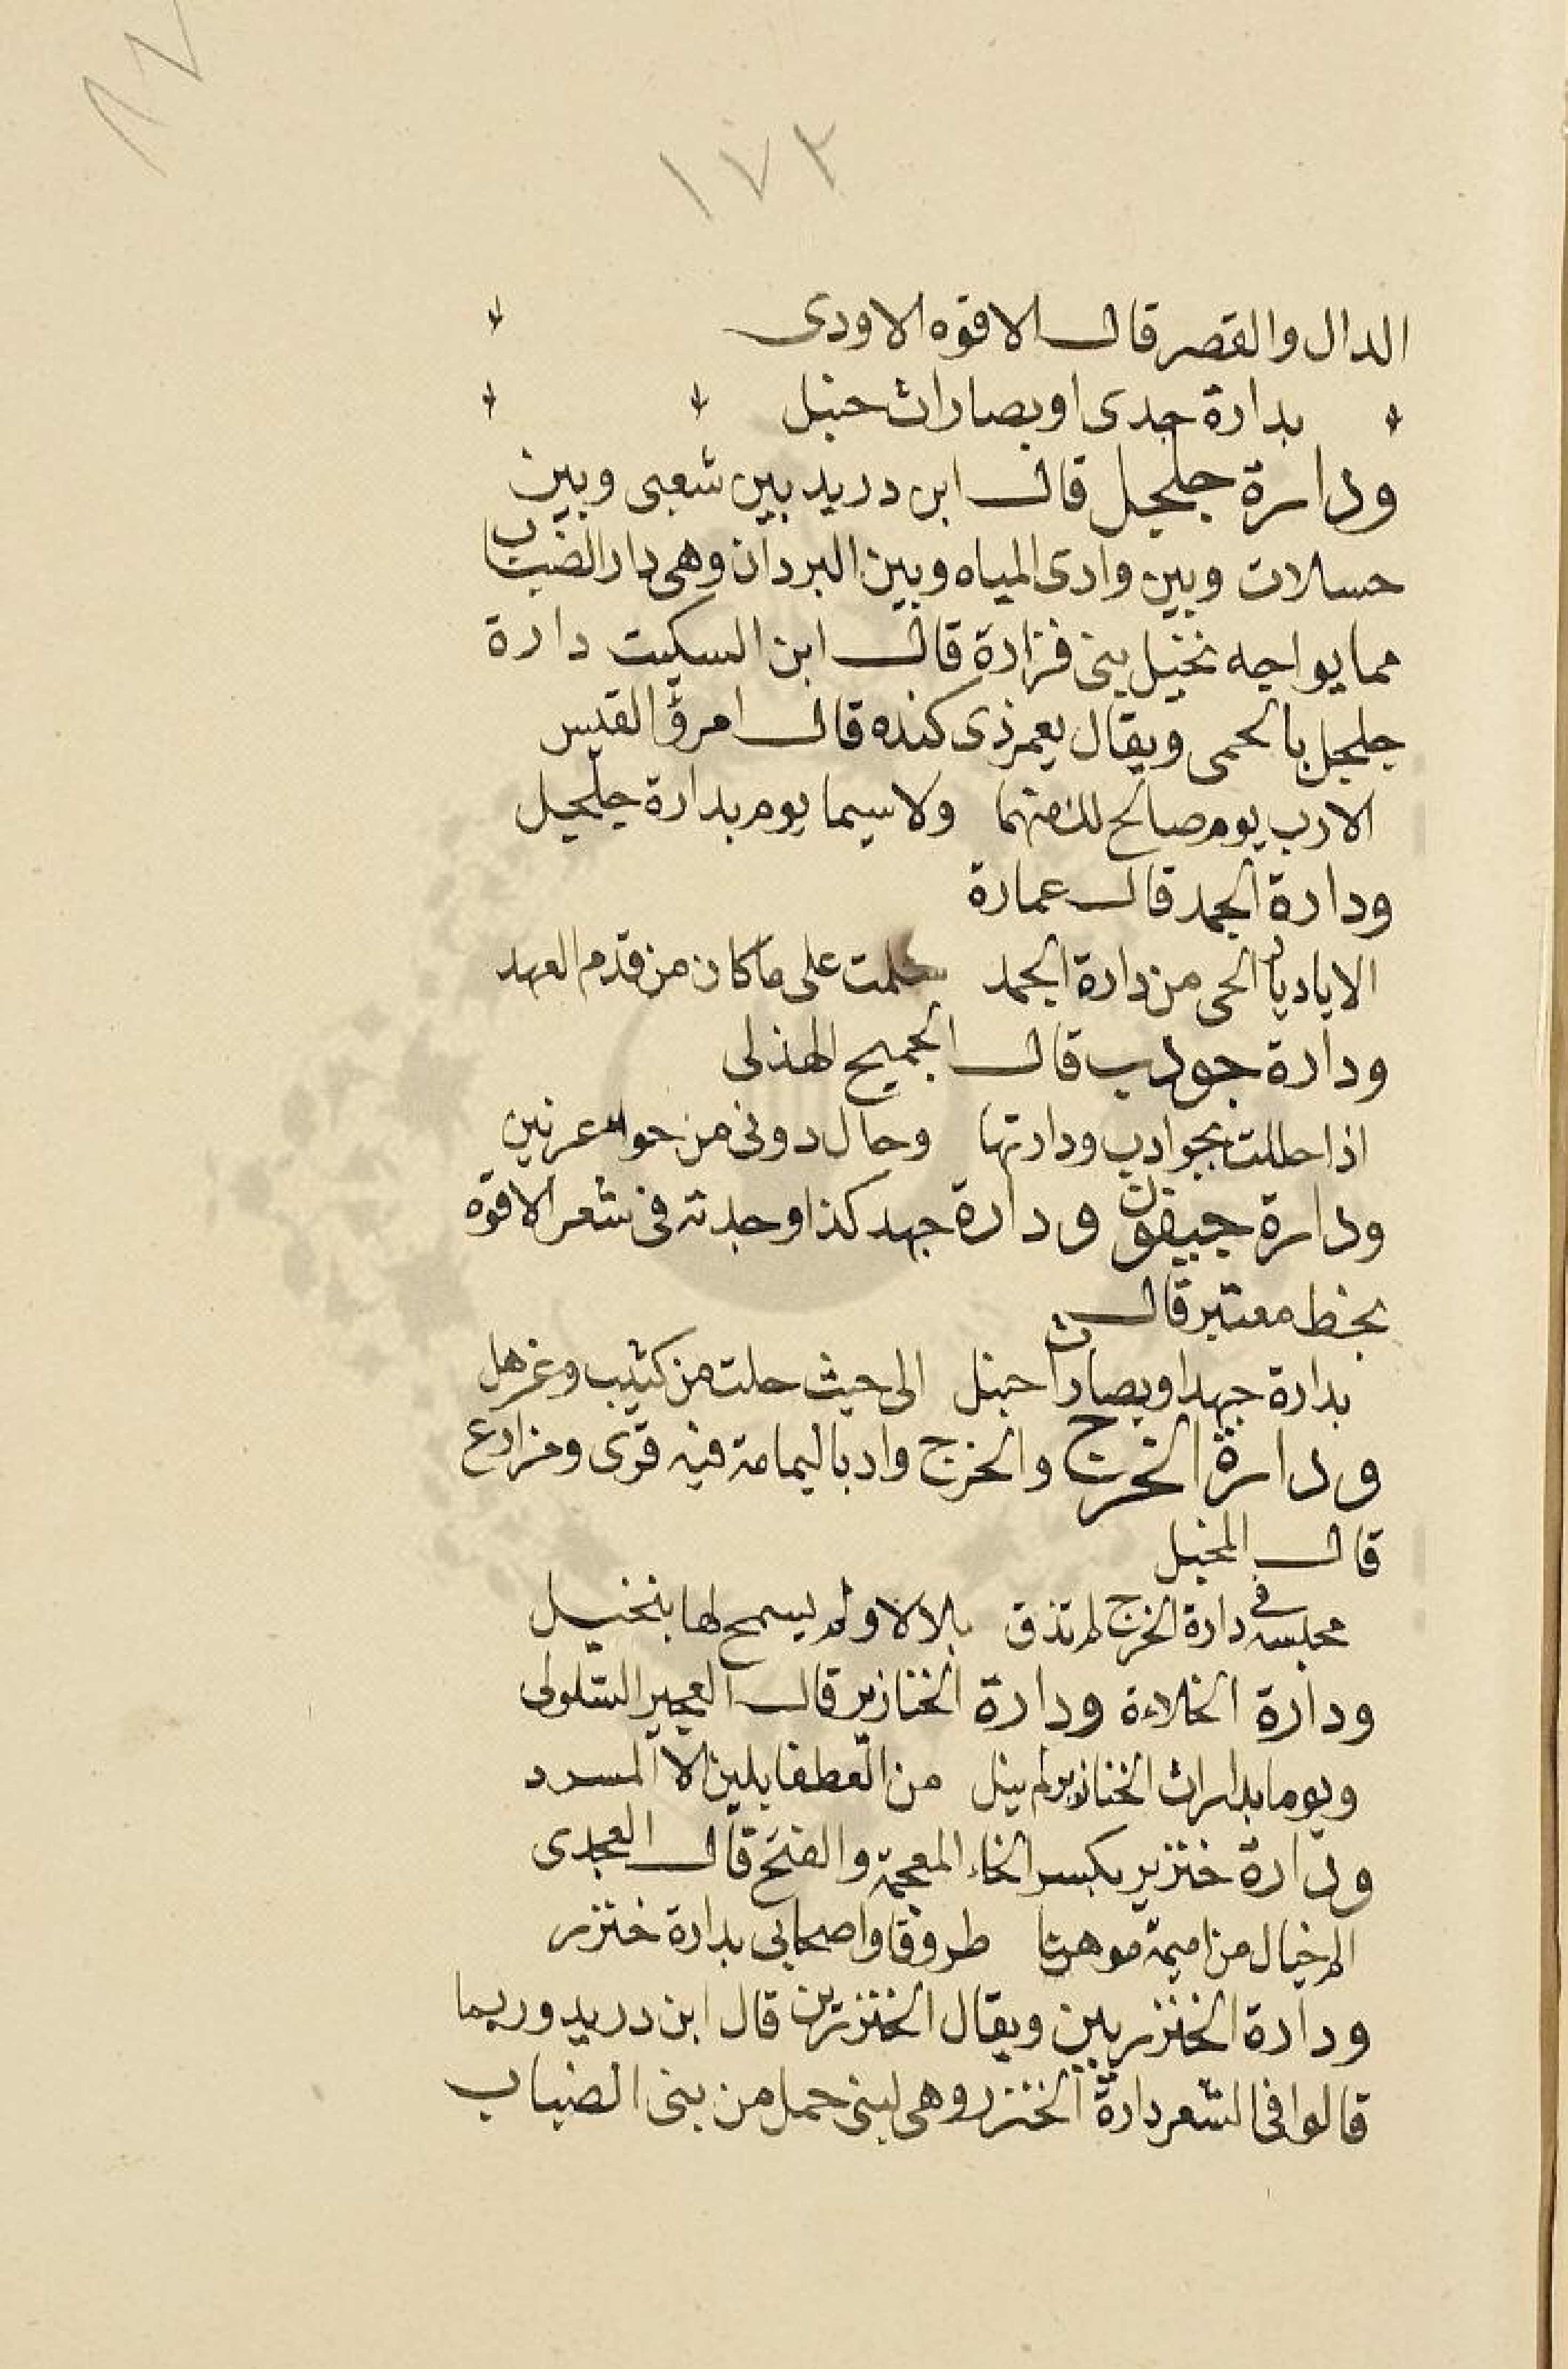 ٨٧
١٧٢
الدال والقصر قال الافوه الاودى
بدارة جدى اوبصارات حنبل
ودارة جلجل قال ابن دريد بين شعبى وبين
حسلات وبين وادى المياه وبين البردان وهى دار الضباب
مما يواجه نخيل بنى فزارة قال ابن السكيت دارة
جلجل بالحمى ويقال بغمر ذى كنده قال امرؤ القيس
الارب يوم صالح لك منهما ولاسيما يوم بدارة جلجل
ودارة الجمد قال عمارة
الا ياديار الحى من دارة الجمد سلمت على ماكان من قدم العهد
ودارة جودب قال الجميح الهذلى
اذا حللت بجوادب ودارتها وحال دونى من حواء عرنين
ودارة جيفون ودارة جهد كذا وجدته فى شعر الافوه
بخط معتبر قال
بدارة جهد اوبصارات حنبل الى حيث حلت من كثيب وعزهل
ودارة الخرج والخرج واد باليمامة فيه قرى ومزارع
قال المخبل
محبسه فى دارة الخرج لم تذق بلالا ولم يسمح لها بنخيل
ودارة الخلاءة ودارة الخنازير قال العجير السلولى
ويوما بدارات الخنازير لم ينل من الغطفايلين الا المسرد
ودارة خنزير بكسر الخاء المعجمة والفتح قال الجعدى
الم خيال من اميمة موهنا طروقا واصحابى بدارة خنزر
ودارة الخنزريين ويقال الخنزرتين قال ابن دريد وربما
قالوا فى الشعر دارة الخنزر وهى لبنى حمل من بنى الضباب